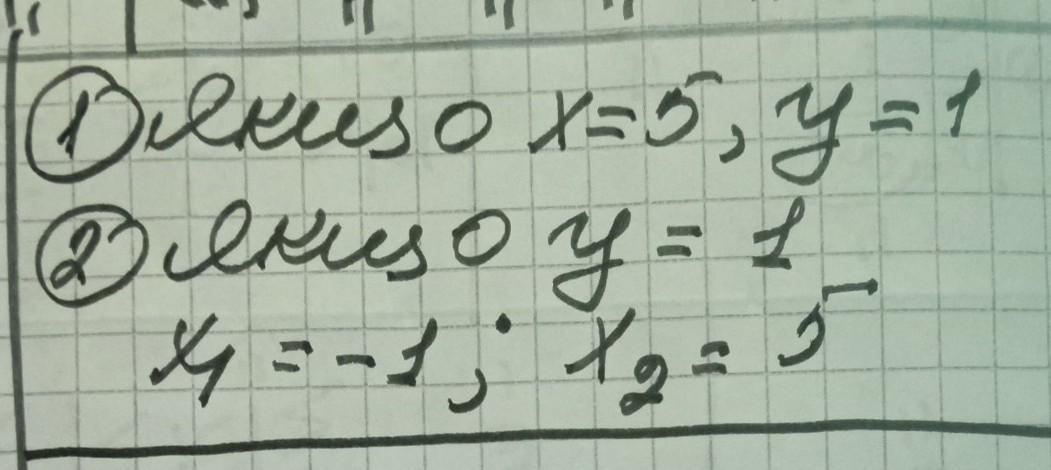 ① Якщо x=5, y=1
② Якщо y = 1
x₁ = -1; x₂ = 5